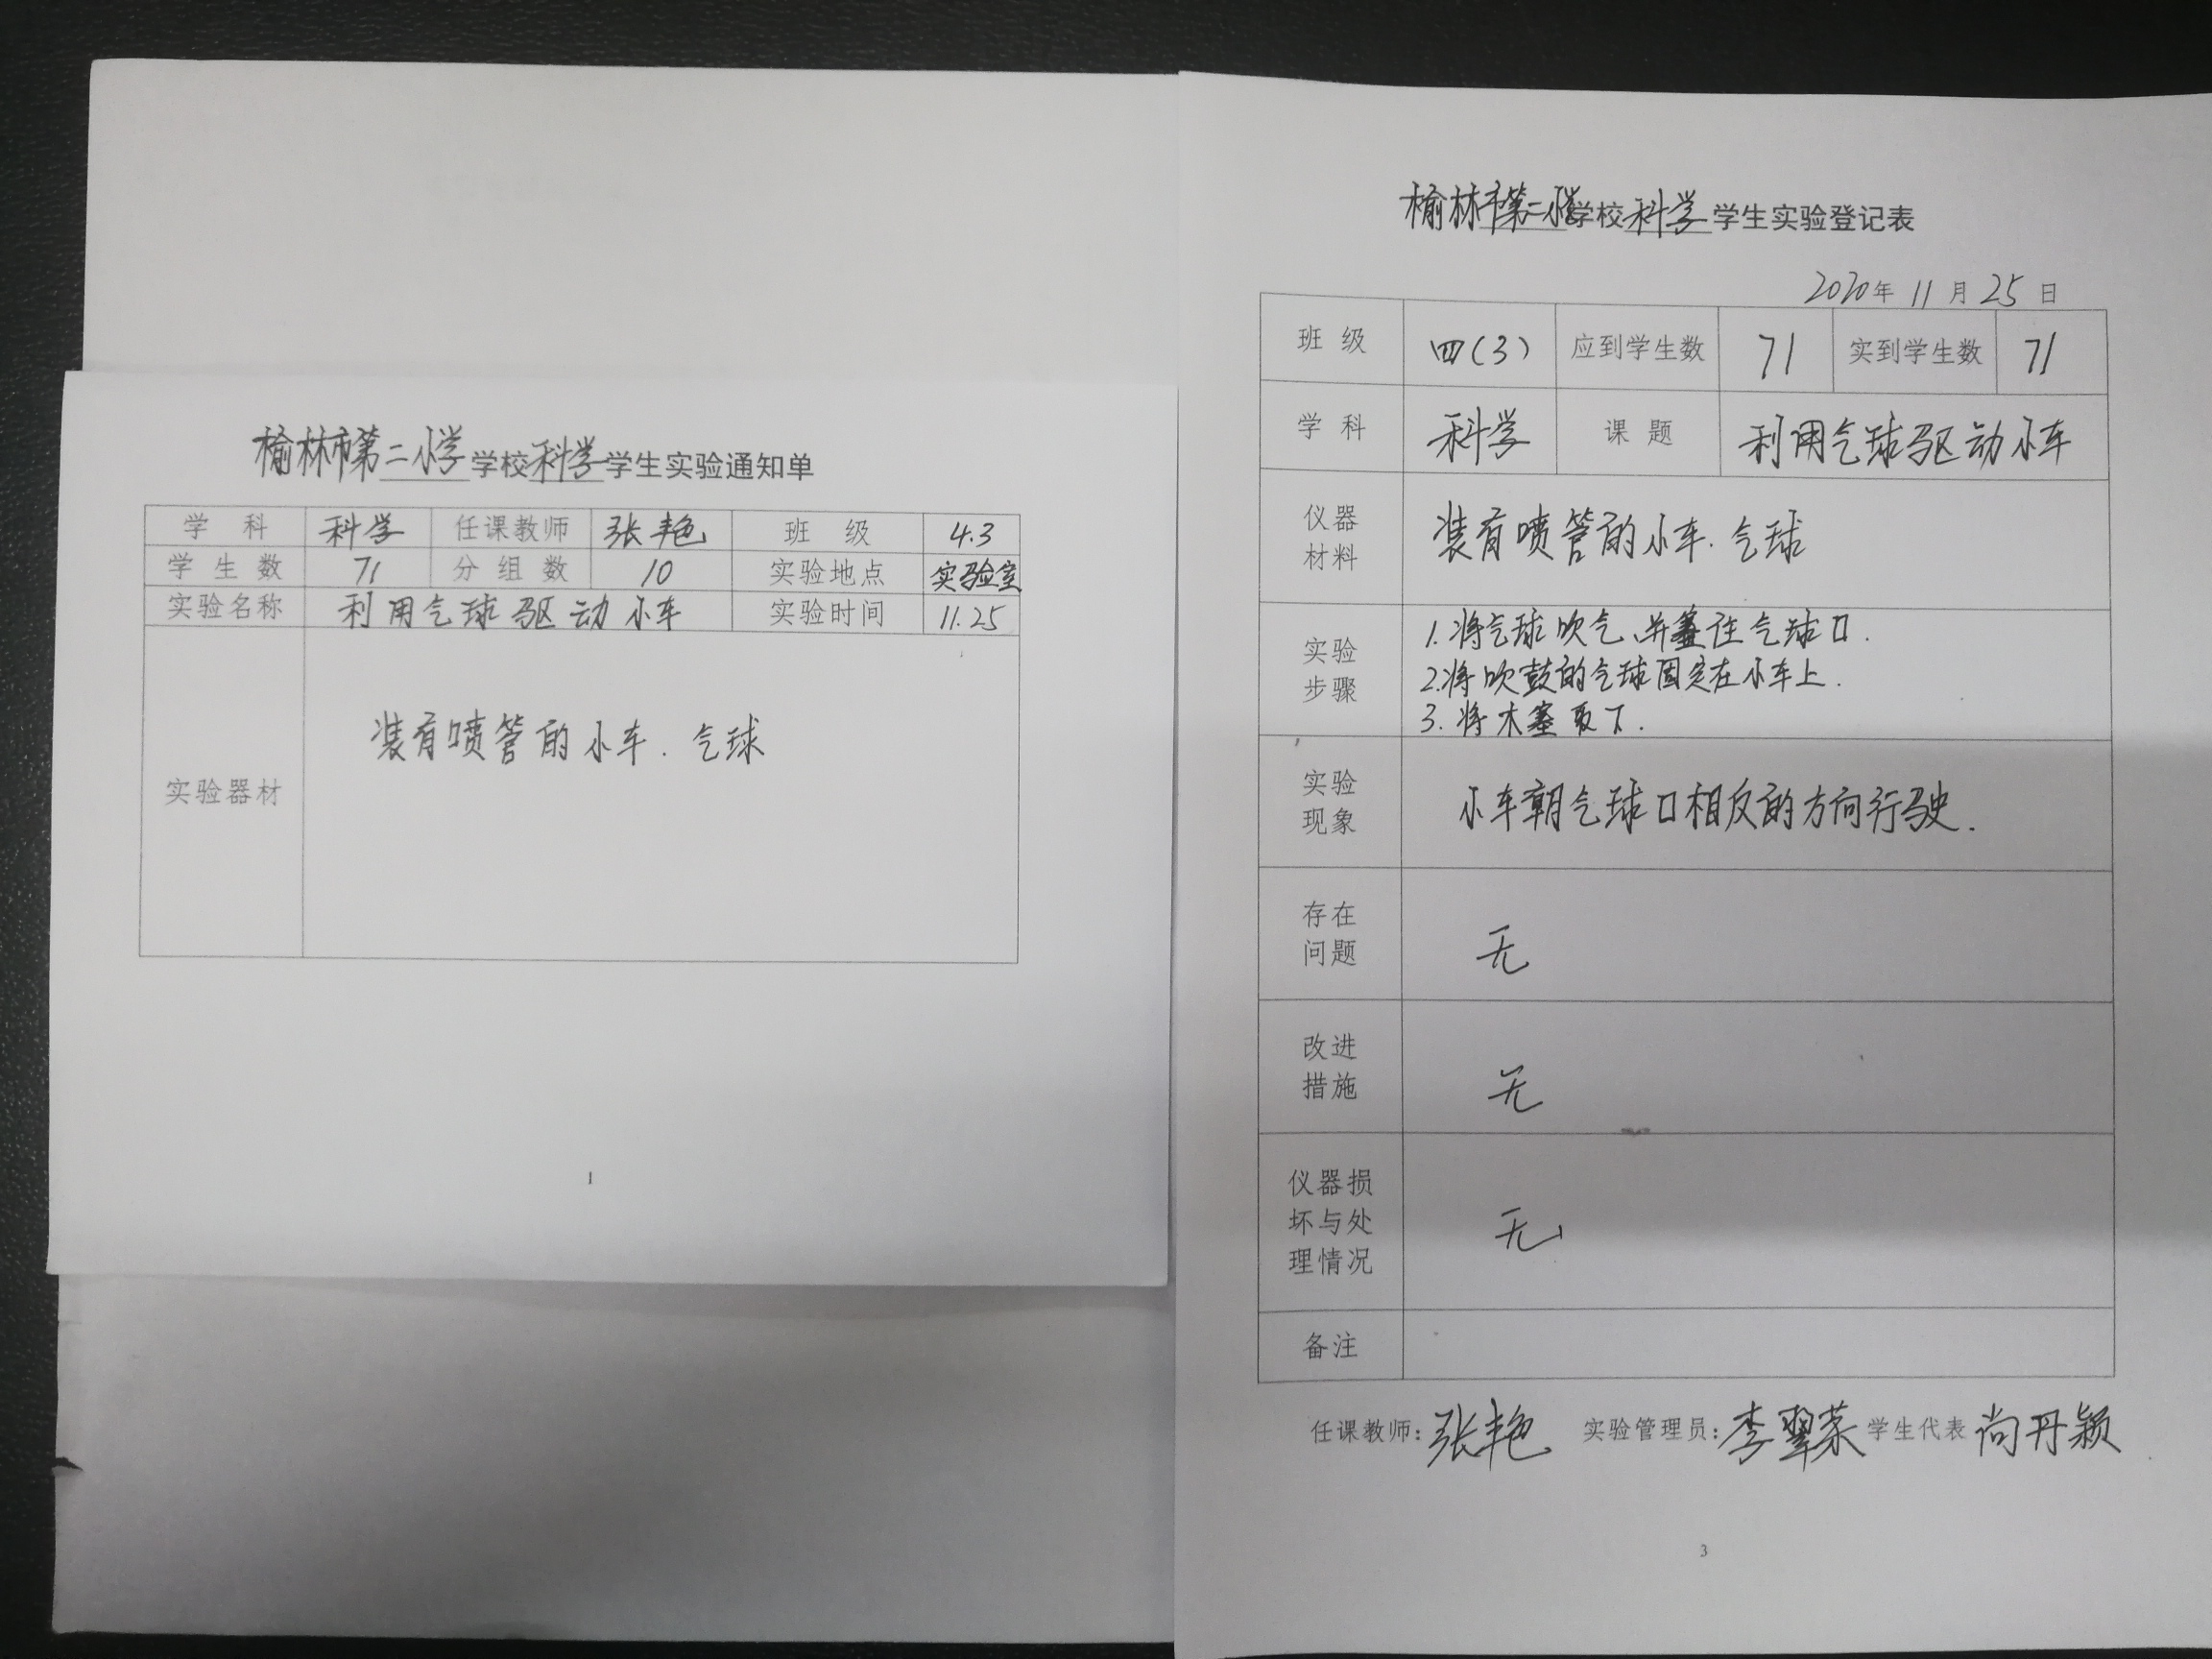 榆林市第二小学学校科学学生实验通知单
学 科 科学 任课教师 张艳 班 级 4.3
学生数 71 分组数 10 实验地点 实验室
实验名称 利用气球驱动小车 实验时间 11.25
实验器材 装有喷管的小车.气球
1
榆林市第二小学学校科学学生实验登记表
2020年11月25日
班 级 四(3) 应到学生数 71 实到学生数 71
学 科 科学 课 题 利用气球驱动小车
仪器
材料
装有喷管的小车.气球
实验
步骤
1.将气球吹气、并塞住气球口.
2.将吹鼓的气球固定在小车上.
3.将木塞取下.
实验
现象
小车朝气球口相反的方向行驶.
存在
问题
无
改进
措施
无
仪器损
坏与处
理情况
无
备注
任课教师:张艳 实验管理员:李翠荣 学生代表 尚丹颖
3